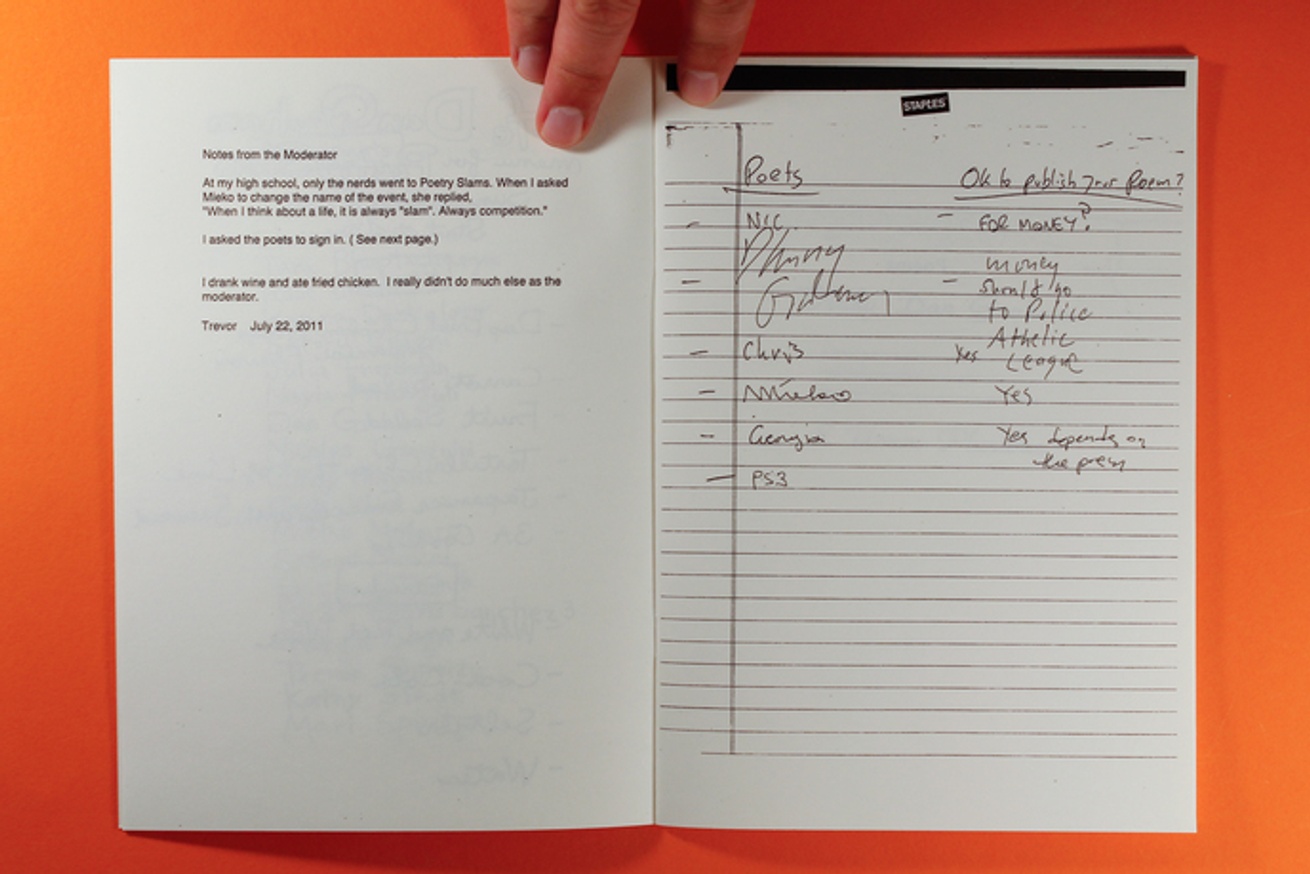 Notes from the Moderator
At my high school, only the nerds went to Poetry Slams. When I asked
Mieko to change the name of the event, she replied,
"When I think about a life, it is always "slam". Always competition."
I asked the poets to sign in. ( See next page.)
I drank wine and ate fried chicken.  I really didn't do much else as the
moderator.
Trevor   July 22, 2011
STAPLES
Poets
Ok to publish your Poem?
- Nic
- FOR MONEY?
-
- money
should go
to Police
Athelic
League
- Chris
Yes
- Mieko
Yes
- Georgia
Yes depends on
the poem
- PS3